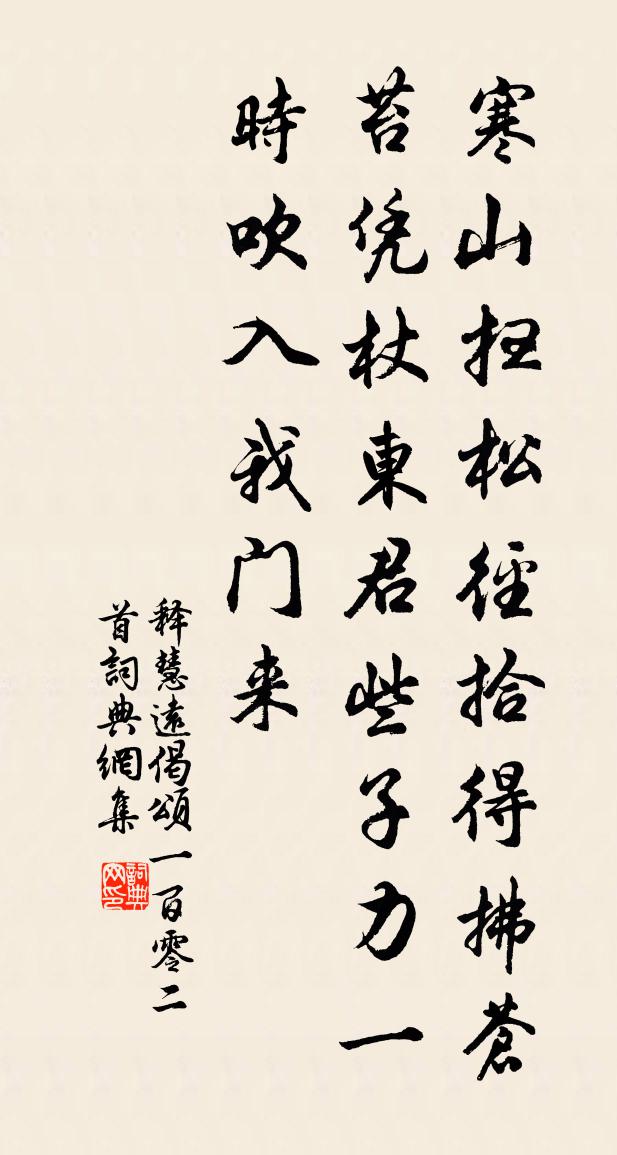 寒山扫松徑拾得拂蒼
苔凭杖東君些子力一
時吹入我门来
释慧遠偈頌一百零二
首詞典網集
詞典网印